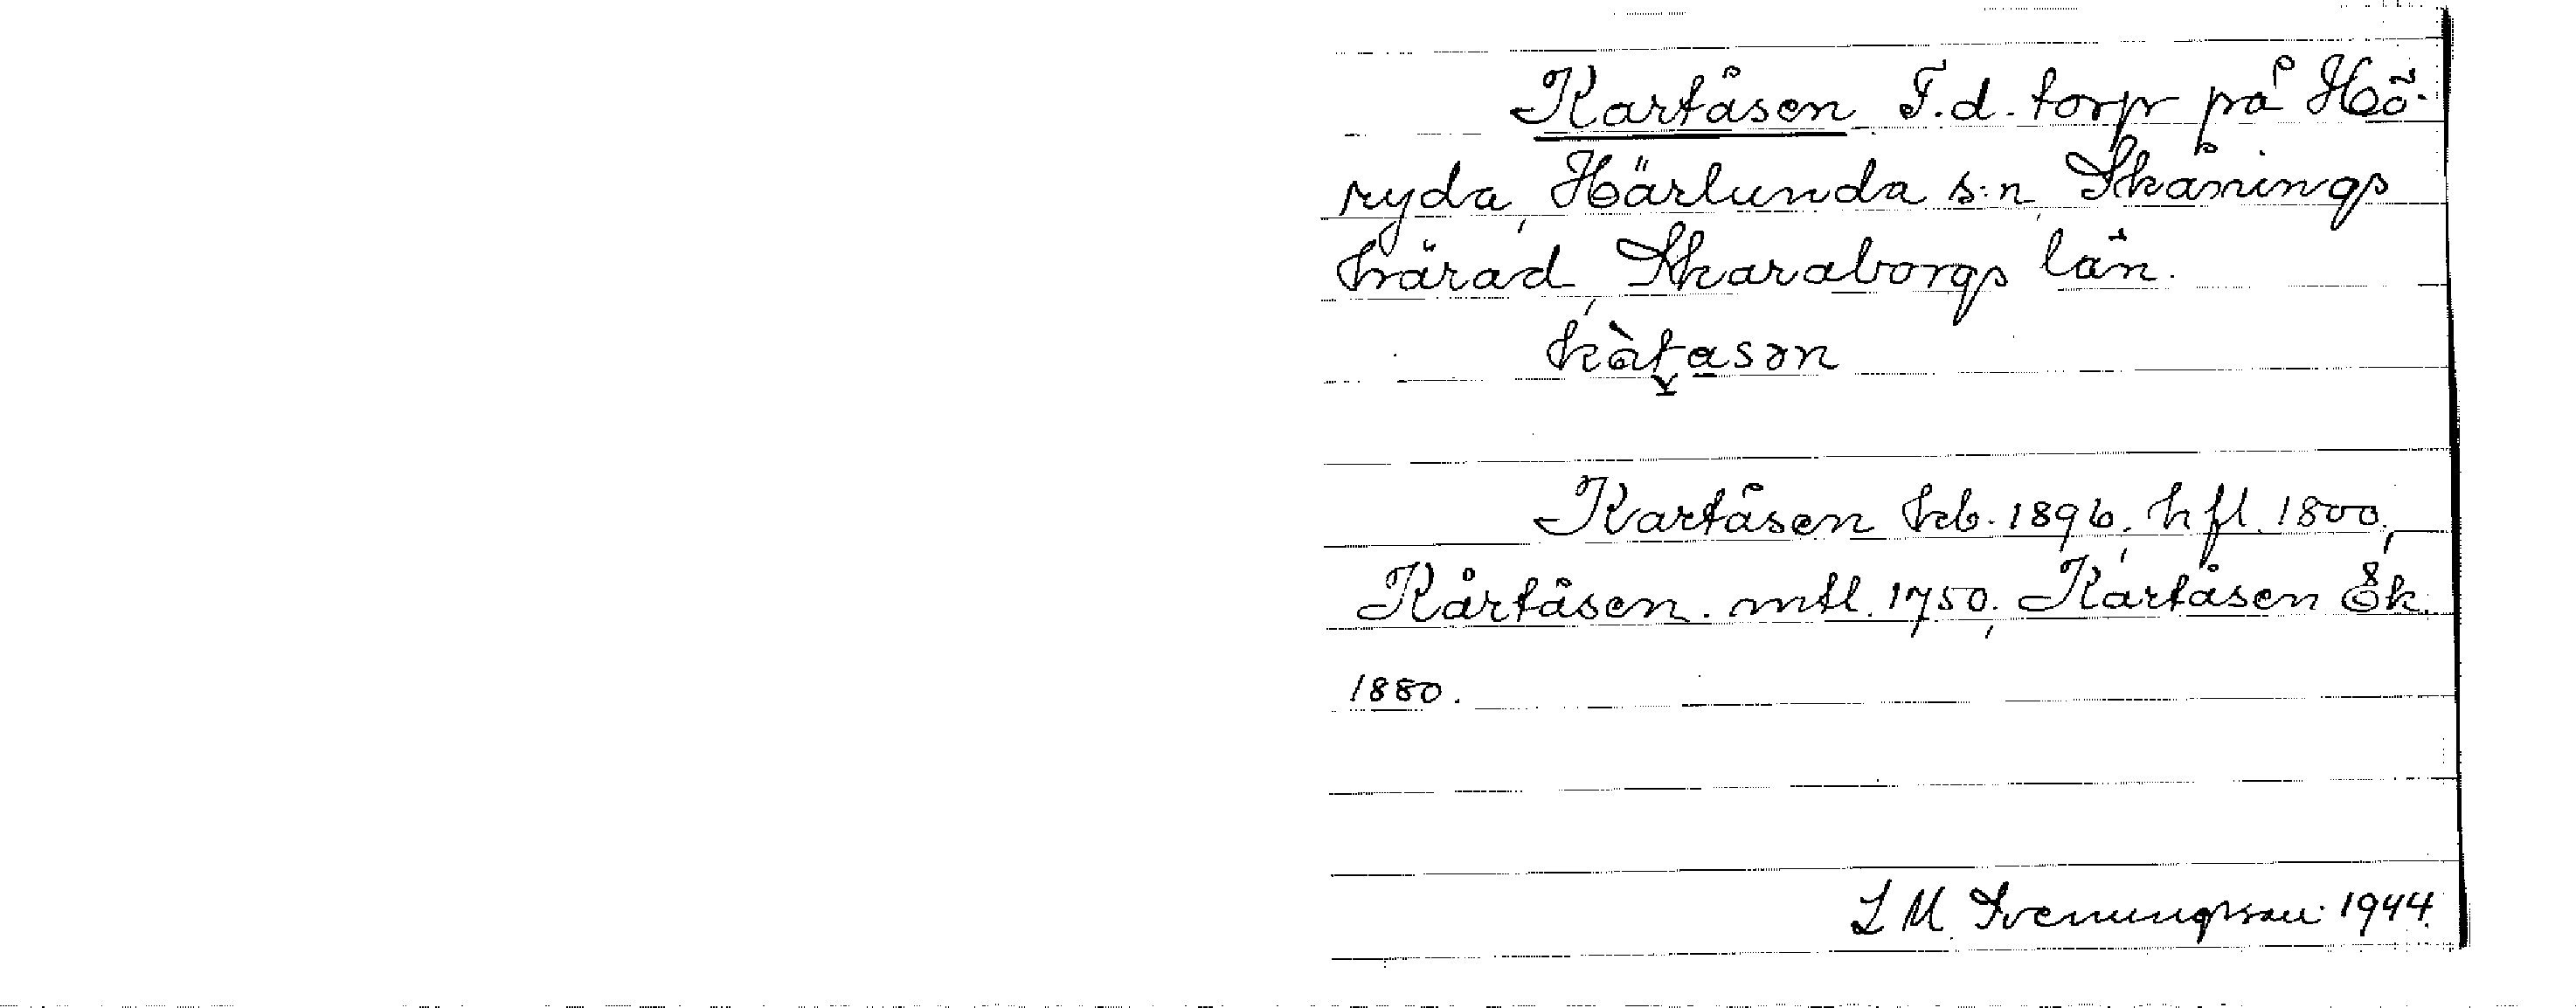 Kartåsen F.d. torp på Hö-
ryda, Härlunda s:n, Skånings
härad, Skaraborgs län.
kàtasən
Kartåsen kb. 1896, hfl. 1800,
Kårtåsen. mtl. 1750, Kartåsen Ek.
1880.
L M. Svenungsson 1944.